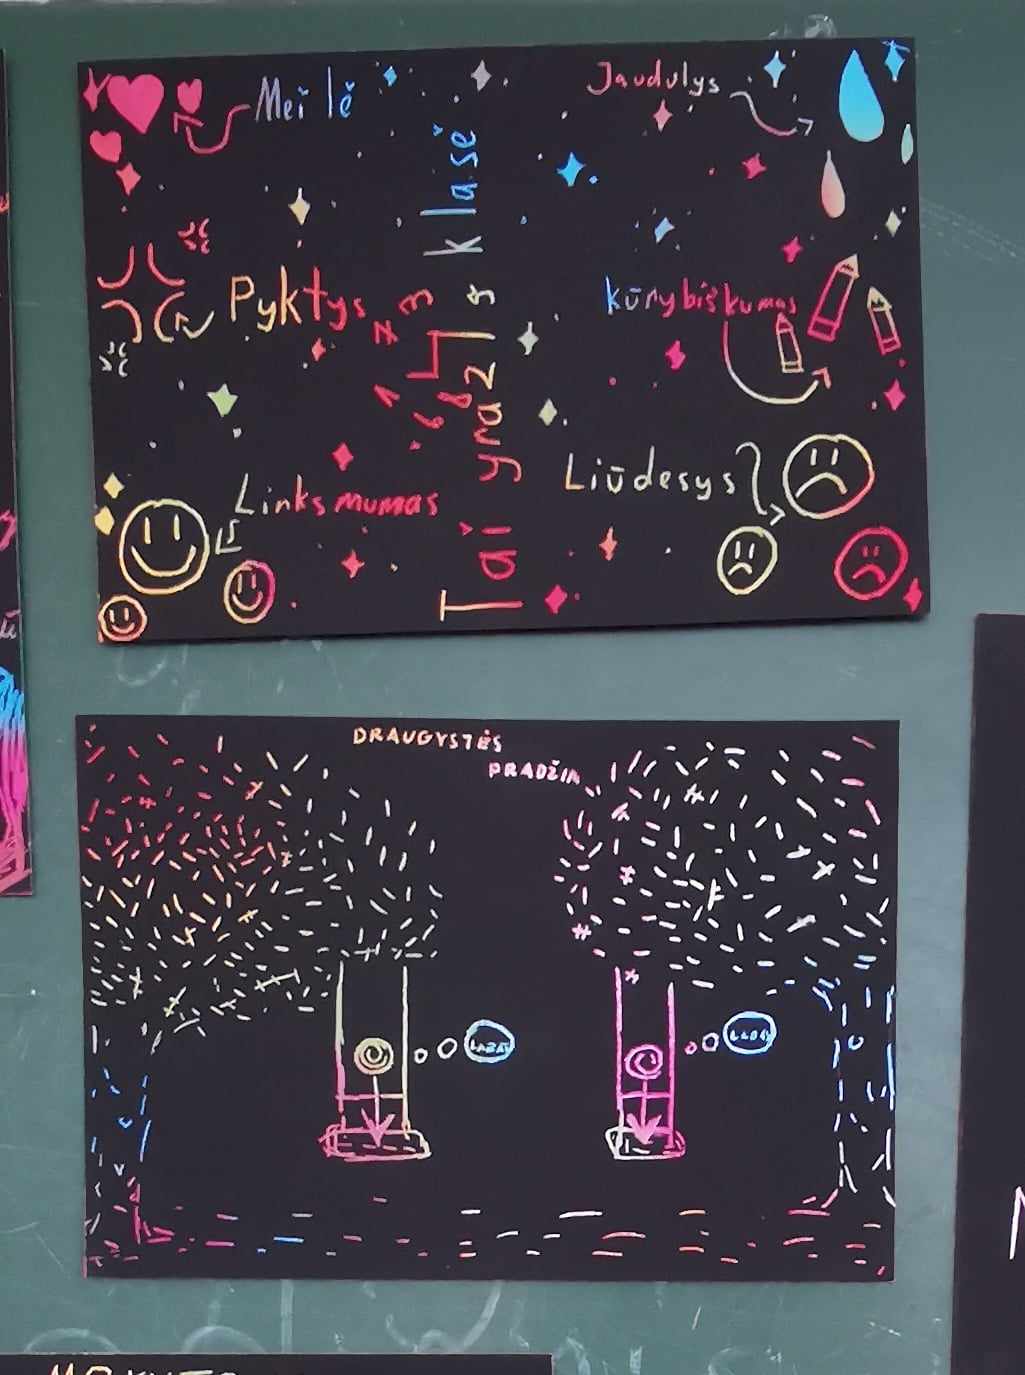 Meilė
Jaudulys
Pyktys
kūrybiškumas
Linksmumas
Liūdesys
Tai yra 2
klasė
DRAUGYSTĖS
PRADŽIA
LABAS
LABAS